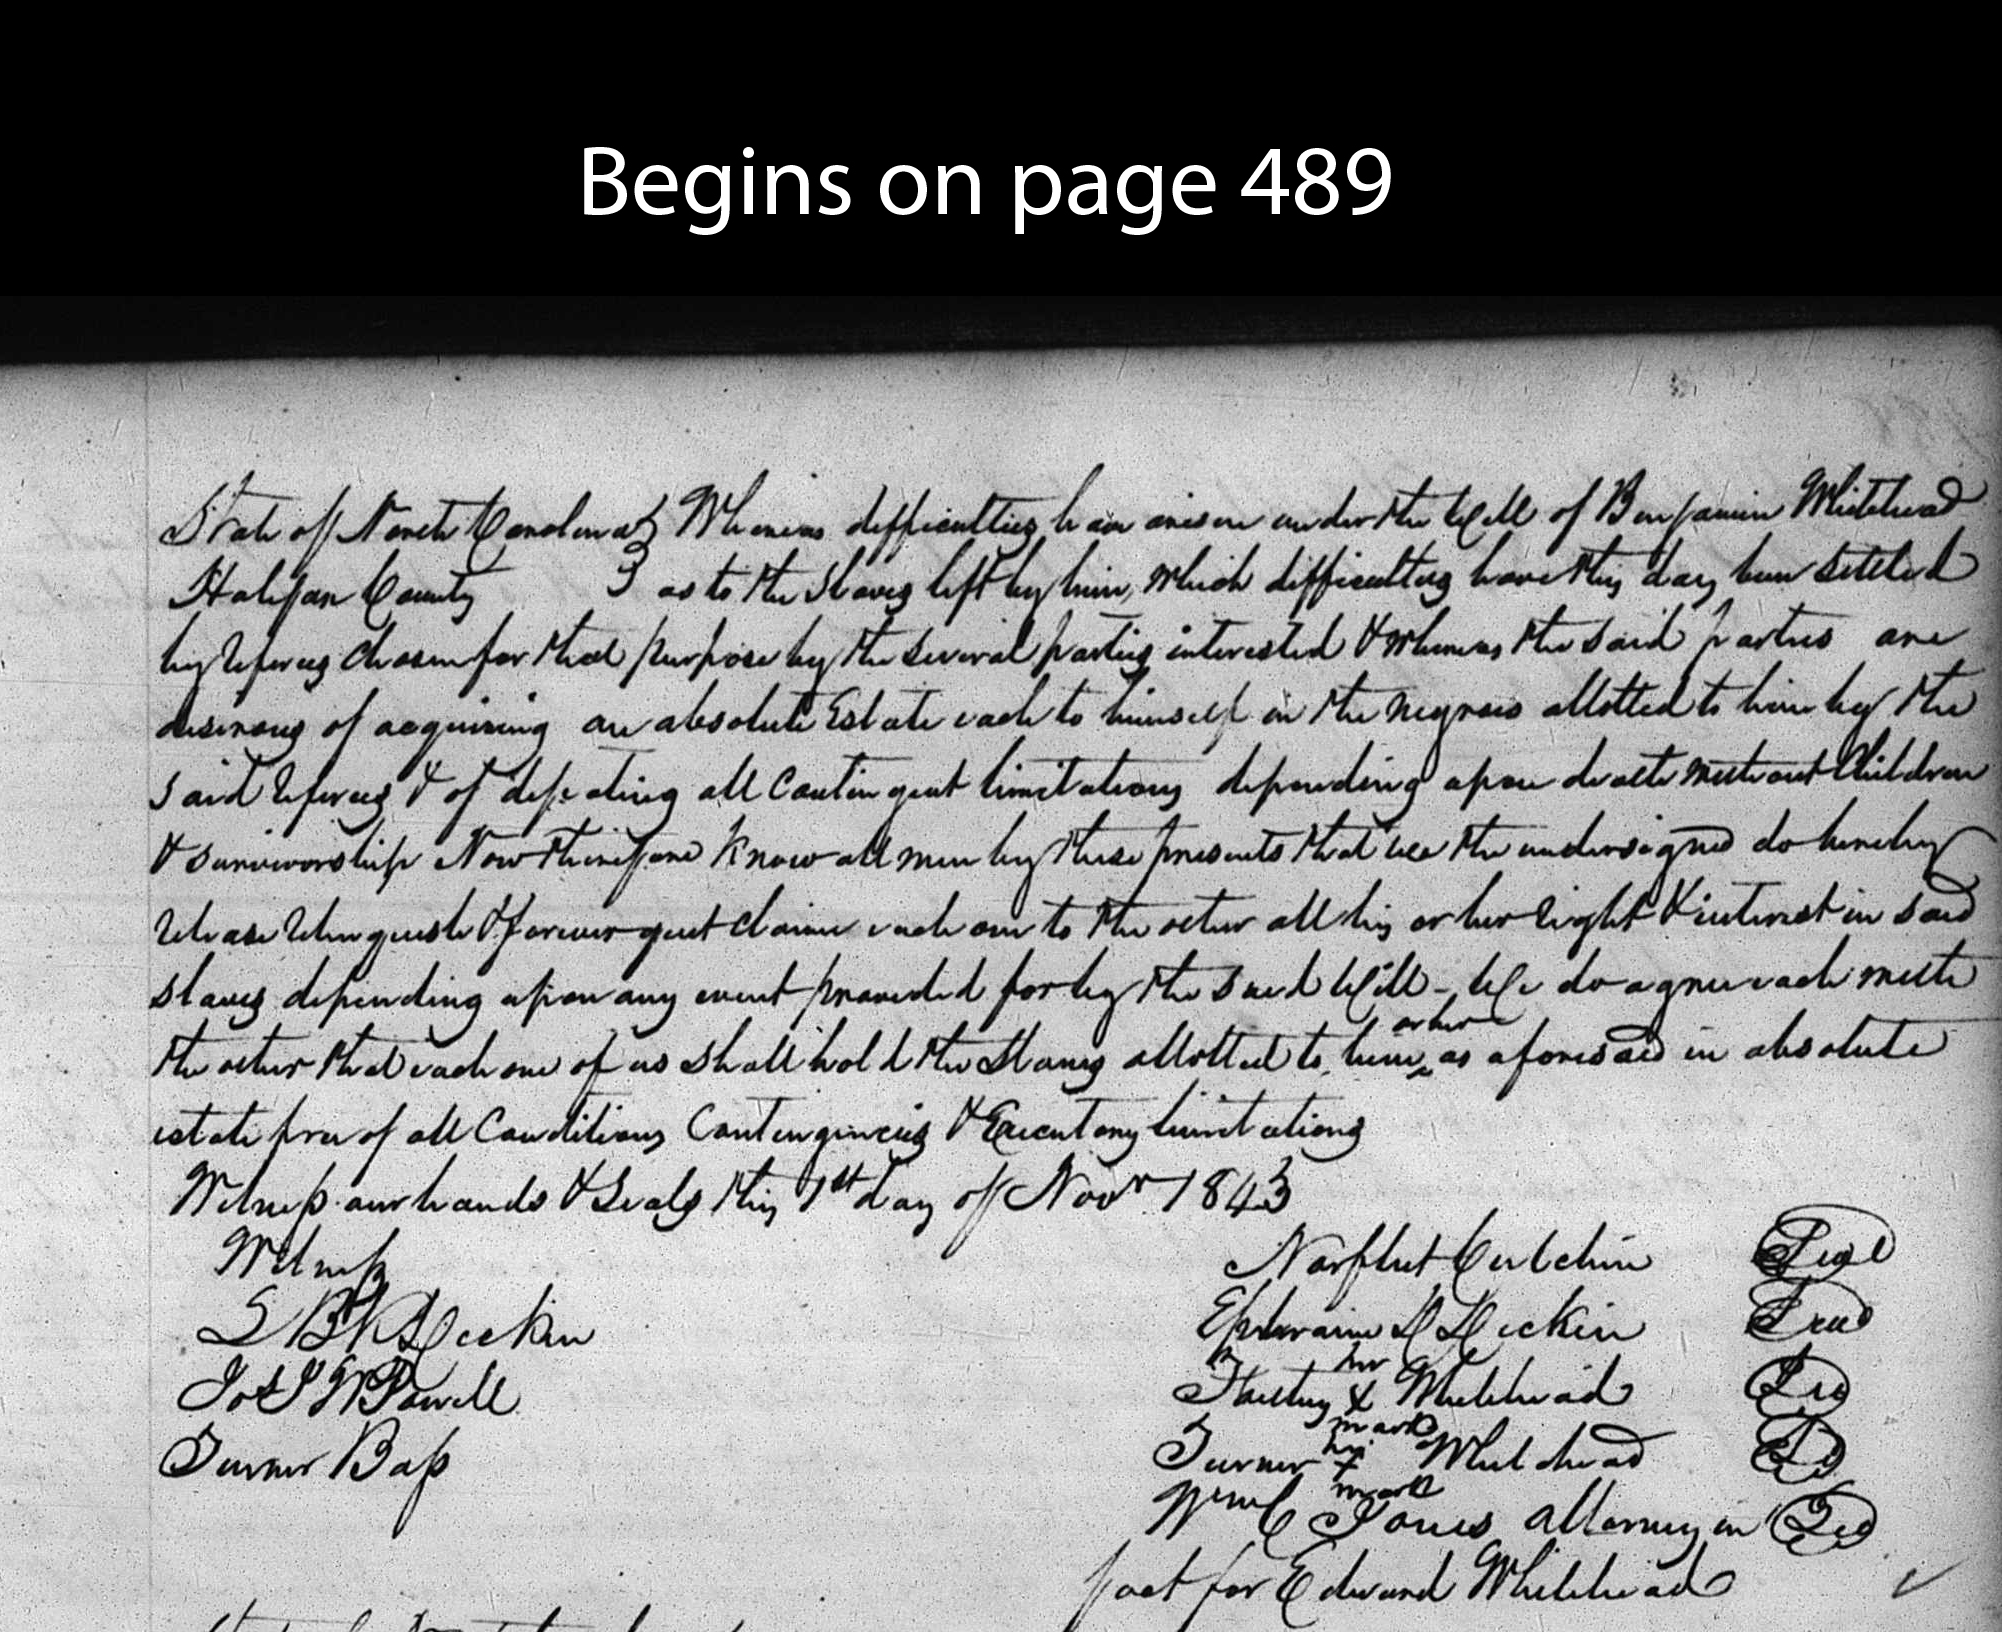 Begins on page 489
State of North Carolina } Whereas difficulties have arisen under the Will of Benjamin Whitehead
Halifax County } as to the Slaves left by him, which difficulties have this day been settled
by referees chosen for that purpose by the several parties interested & whereas the said parties are
desirous of acquiring an absolute Estate each to himself in the negroes allotted to him by the
said referees & of defeating all contingent limitations depending upon death without Children
& survivorship Now therefore Know all men by these presents that we the undersigned do hereby
release relinquish & forever quit claim each one to the other all his or her right & interest in said
slaves depending upon any event provided for by the said Will - We do agree each with
the other that each one of us shall hold the slaves allotted to him or her as aforesaid in absolute
estate free of all Conditions Contingencies & Executory limitations
Witness our hands & Seals this 1st day of Novr 1843
Witness
Norfleet Cutchin Seal
S B K Dicken
Ephraim D Dickin Seal
Jos J W Powell
her
X Whitehead
mark
Turner Bass
Turner his X Whitehead
mark
Wm C Jones attorney in
fact for Edward Whitehead